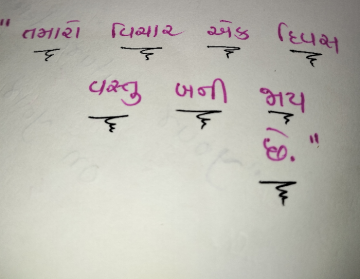 "તમારો વિચાર એક દિવસ
વસ્તુ બની જાય
છે."